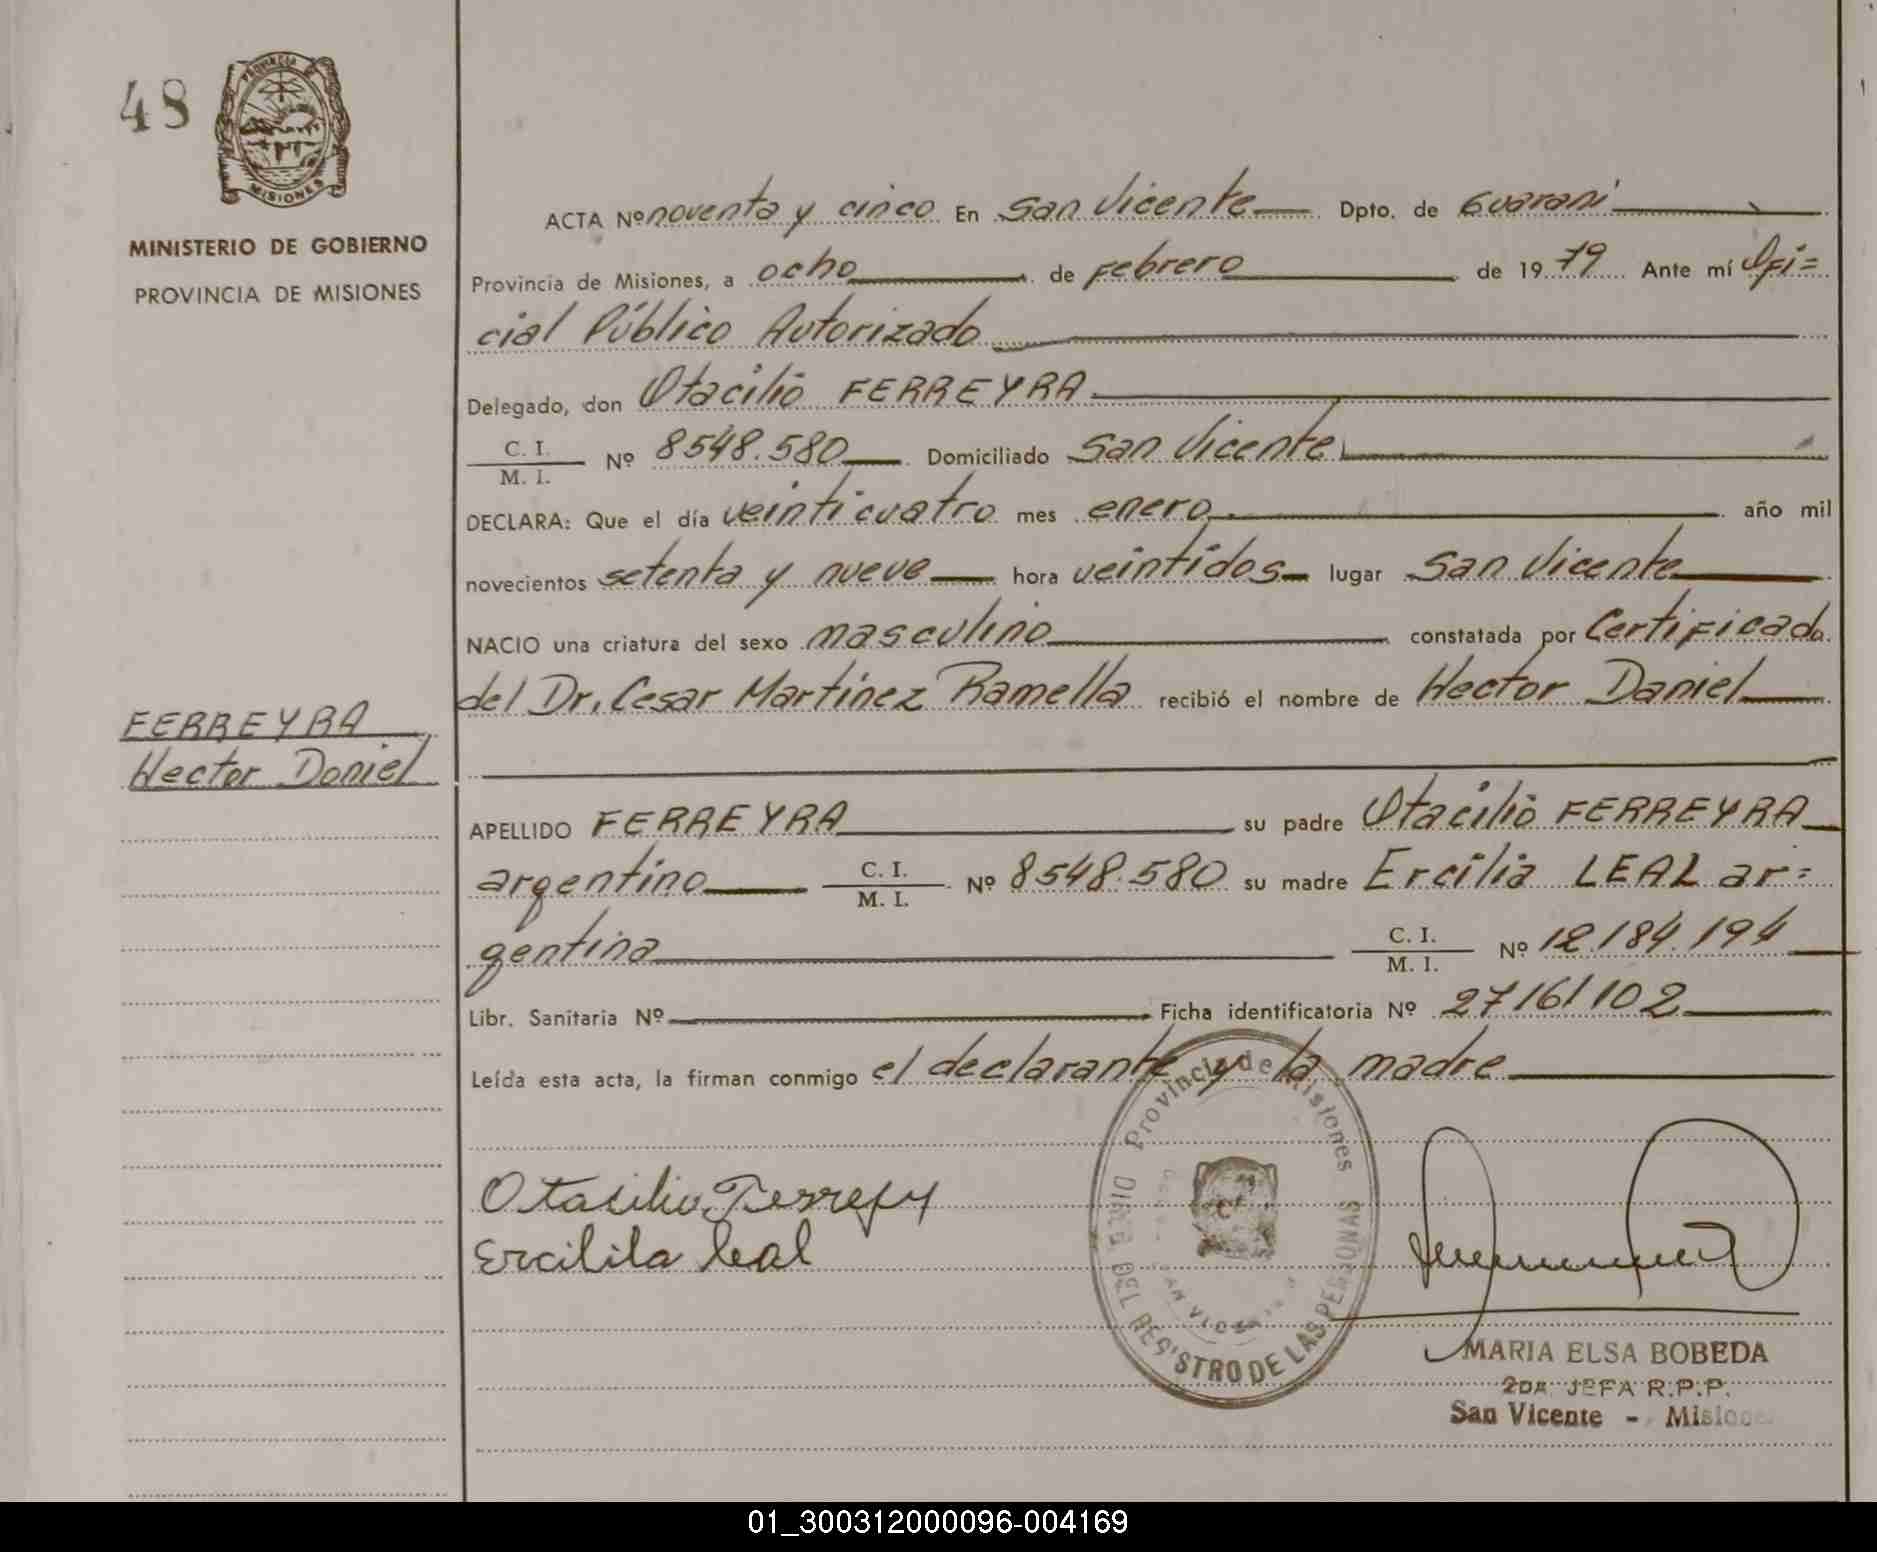 48
PROVINCIA DE
MISIONES
MINISTERIO DE GOBIERNO
PROVINCIA DE MISIONES
FERREYRA
Hector Daniel
ACTA Nº noventa y cinco En San Vicente Dpto. de Guarani
Provincia de Misiones, a ocho de Febrero de 1979 Ante mí Ofi=
cial Público Autorizado
Delegado, don Otacilio FERREYRA
C. I.
M. I. Nº 8548.580 Domiciliado San Vicente
DECLARA: Que el día veinticuatro mes enero año mil
novecientos setenta y nueve hora veintidos lugar San Vicente
NACIO una criatura del sexo masculino constatada por Certificado
del Dr. Cesar Martínez Ramella recibió el nombre de Hector Daniel
APELLIDO FERREYRA su padre Otacilio FERREYRA
argentino C. I.
M. I. Nº 8548.580 su madre Ercilia LEAL ar=
gentina C. I.
M. I. Nº 12.184.194
Libr. Sanitaria Nº Ficha identificatoria Nº 27161102
Leída esta acta, la firman conmigo el declarante y la madre
Otacilio Ferrey
Ercilila leal
Provincia de Misiones
DEL REGISTRO DE LAS PERSONAS
MARIA ELSA BOBEDA
2DA JEFA R.P.P.
San Vicente - Misiones
01_300312000096-004169